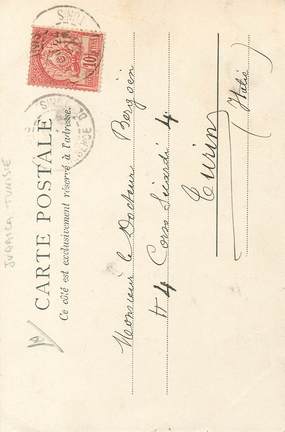 CARTE POSTALE
Ce côté est exclusivement réservé à l'adresse.
Monsieur le Docteur Bergoën
4 Corso Siccardi 4
Turin
(Italie)
10
TUNIS
JUDAICA TUNISIE